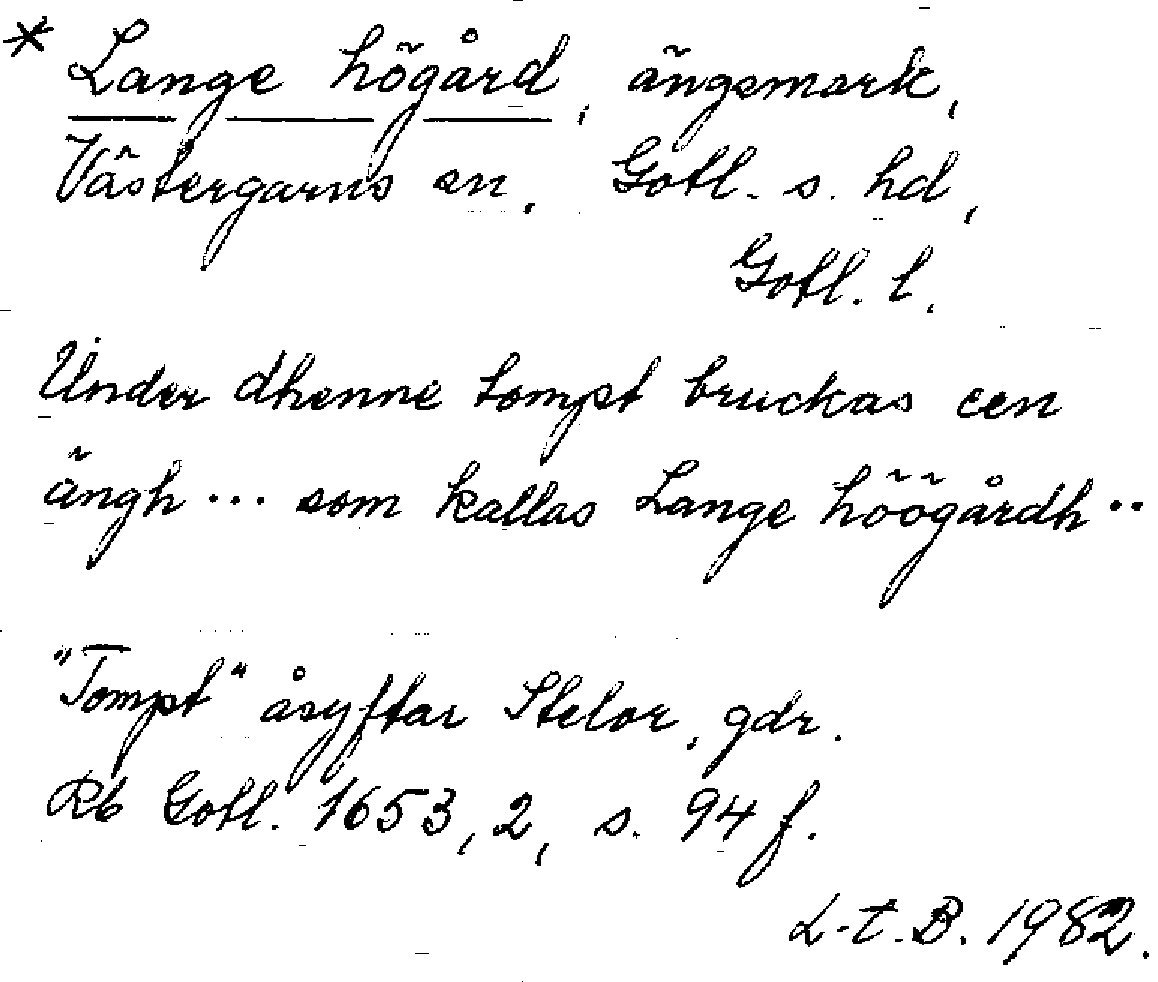 * Lange högård, ängsmark,
Västergarns sn, Gotl. s. hd,
Gotl. l.
Under dhenne tompt bruckas een
ängh ... som kallas Lange höögårdh ..
"Tompt" åsyftar Stelor, gdr.
Rb Gotl. 1653, 2, s. 94 f.
L-t. B. 1982.